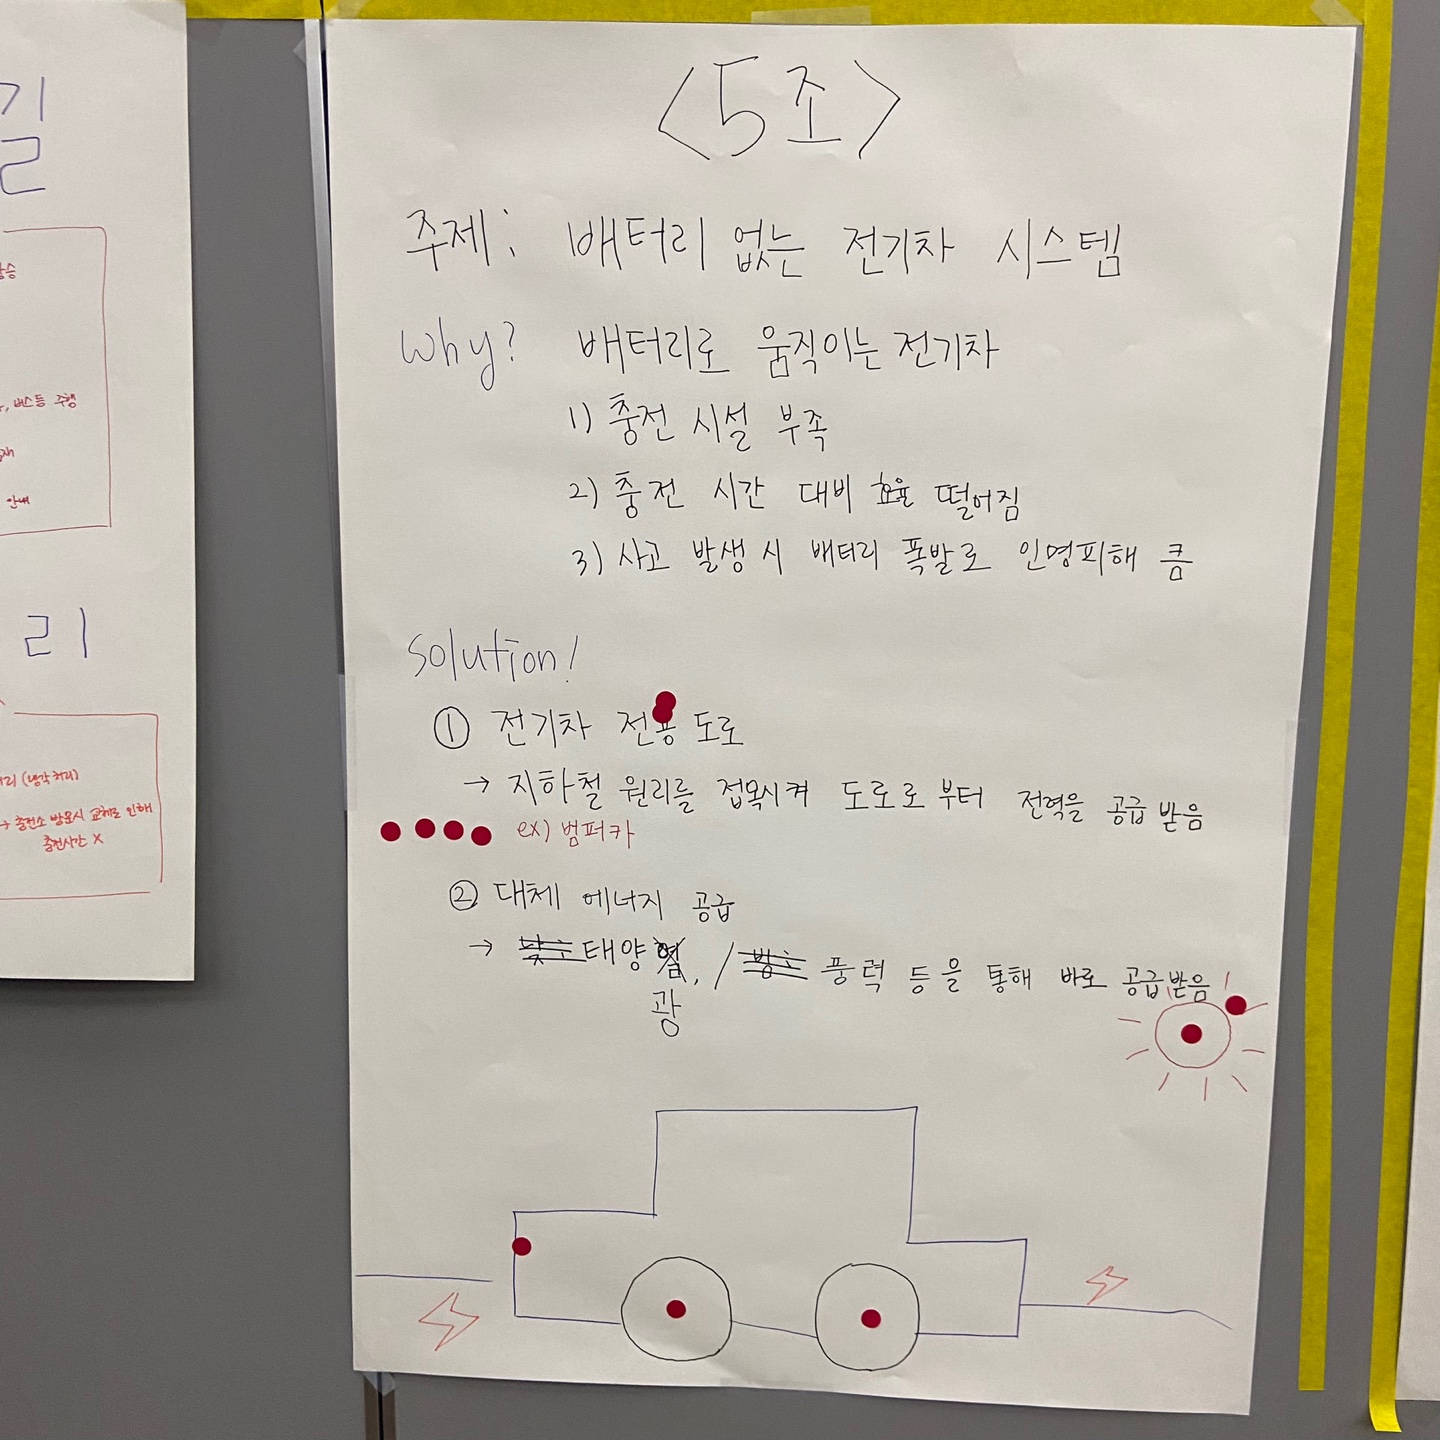 <5조>
주제: 배터리 없는 전기차 시스템
Why? 배터리로 움직이는 전기차
1) 충전 시설 부족
2) 충전 시간 대비 효율 떨어짐
3) 사고 발생 시 배터리 폭발로 인명피해 큼
Solution!
① 전기차 전용 도로
→ 지하철 원리를 접목시켜 도로로부터 전력을 공급 받음
ex) 범퍼카
② 대체 에너지 공급
→ 태양광, / 풍력 등을 통해 바로 공급받음!
길
버스등 주행
안내
리
(냉각처리)
→ 충전소 방문시 교체로 인해
충전시간 X